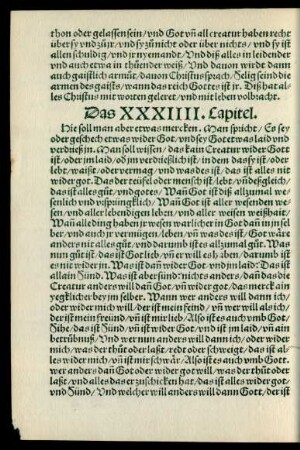 thon oder gelassen sein/ vnd Got vñ all creatur haben recht
über sy vnd zůir/ vnd sy zů nicht oder über nichts/ vnd sy ist
allen schuldig/ vnd jr nyemandt/ Vnd diß alles in leidender
vnd auch etwa in thůender weiß/ Vnd dauon wirdt dann
auch gaistlich armůt/ dauon Christus sprach/ Selig seind die
armen des gaists/ wann das reich Gottes ist jr. Diß hat al-
les Christus mit worten geleret/ vnd mit leben volbracht.
Das XXXIIII. Capitel.
Hie soll man aber etwas mercken. Man spricht/ Es sey
oder geschech etwas wider Got/ vnd sey Got etwas laid vnd
verdrieß in. Man soll wissen/ das kain Creatur wider Got
ist/ oder jm laid/ od jm verdrießlich ist/ in dem das sy ist/ oder
lebt/ waißt/ oder vermag/ vnd was des ist/ das ist alles nit
wider got. Das der teüfel oder mensch ist/ lebt/ vñ deßgleich/
das ist alles gůt/ vnd gotes/ Wañ Got ist diß allzumal we-
senlich vnd vrsprüngklich/ Wañ Got ist aller wesenden we-
sen/ vnd aller lebendigen leben/ vnd aller weisen weißhait/
Wañ alle ding haben jr wesen warlicher in Got dañ in jn sel-
ber/ vnd auch jr vermügen/ leben/ vñ was des ist/ Got wäre
anders nit alles gůt/ vnd darumb ist es allzumal gůt/ Was
nun gůt ist/ das ist Got lieb/ vñ er will es haben/ darumb ist
es nit wider in. Was ist dañ wider Got/ vnd jm laid: Das ist
allain Sünd. Was ist aber sünd: nichts anders/ dañ das die
Creatur anders will dañ Got/ vñ wider got/ das merck ain
yegklicher bey jm selber. Wann wer anders will dann ich/
oder wider mich will/ der ist mein feind/ vñ wer will als ich/
der ist mein freund/ vñ ist mir lieb/ Also ist es auch vmb Got/
Sihe/ das ist Sünd/ vñ ist wider Got/ vnd ist jm laid/ vñ ain
betrübnuß/ Vnd wer nun anders will dann ich/ oder wider
mich/ was der thůt oder laßt/ redt oder schweigt/ das ist al-
les wider mich/ vñ ist mir schwär/ Also ist es auch vmb Got.
wer anders dañ Got oder wider got will/ was der thůt oder
laßt/ vnd alles das er zů schicken hat/ das ist alles wider got/
vnd Sünd/ Vnd welcher will anders will dann Got/ der ist